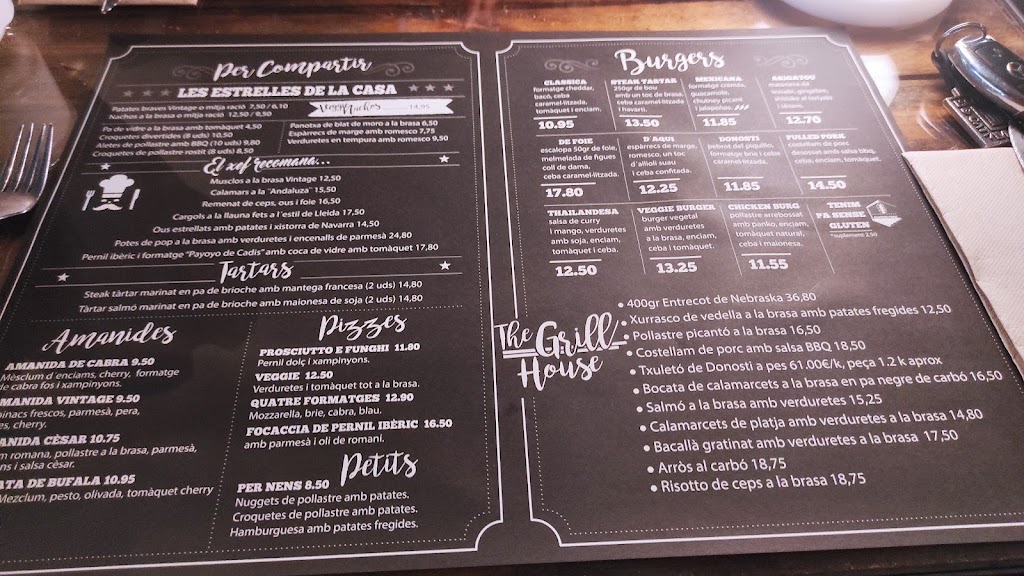 Per Compartir
LES ESTRELLES DE LA CASA
Patates braves Vintage o mitja ració 7,50 / 6,10
Nachos a la brasa o mitja ració 12,50 /
14,95
Pa de vidre a la brasa amb tomàquet 4,50
Croquetes divertides (8 uds) 10,50
Aletes de pollastre amb BBQ (10 uds) 9,80
Croquetes de pollastre rostit (8 uds) 8,50
Panotxa de blat de moro a la brasa 6,50
Espàrrecs de marge amb romesco 7,75
Verduretes en tempura amb romesco 9,50
El xef recomana...
Musclos a la brasa Vintage 12,50
Calamars a la ¨Andaluza¨ 15,50
Remenat de ceps, ous i foie 16,50
Cargols a la llauna fets a l´estil de Lleida 17,50
Ous estrellats amb patates i xistorra de Navarra 14,50
Potes de pop a la brasa amb verduretes i encenalls de parmesà 24,80
Pernil ibèric i formatge “Payoyo de Cadis” amb coca de vidre amb tomàquet 17,80
Tartars
Steak tàrtar marinat en pa de brioche amb mantega francesa (2 uds) 14,80
Tàrtar salmó marinat en pa de brioche amb maionesa de soja (2 uds) 14,80
Amanides
AMANIDA DE CABRA 9.50
Mèsclum d´enciams, cherry, formatge
de cabra fos i xampinyons.
MANIDA VINTAGE 9.50
inacs frescos, parmesà, pera,
es, cherry.
ANIDA CÈSAR 10.75
m romana, pollastre a la brasa, parmesà,
ns i salsa cèsar.
ATA DE BUFALA 10.95
Mezclum, pesto, olivada, tomàquet cherry
Pizzes
PROSCIUTTO E FUNGHI 11.80
Pernil dolç i xampinyons.
VEGGIE 12.50
Verduretes i tomàquet tot a la brasa.
QUATRE FORMATGES 12.90
Mozzarella, brie, cabra, blau.
FOCACCIA DE PERNIL IBÈRIC 16.50
amb parmesà i oli de romani.
Petits
PER NENS 8.50
Nuggets de pollastre amb patates.
Croquetes de pollastre amb patates.
Hamburguesa amb patates fregides.
Burgers
CLASSICA
formatge cheddar,
bacó, ceba
caramel·litzada,
tomàquet i enciam.
10.95
STEAK TARTAR
250gr de bou
amb un toc de brasa,
ceba caramel·litzada
i múrgules.
13.50
MEXICANA
formatge cremós,
guacamole,
chutney picant
i jalapeños
11.85
ARIGATOU
12.70
DE FOIE
escalopa 50gr de foie,
melmelada de figues
coll de dama,
ceba caramel·litzada.
17.80
D´AQUI
espàrrecs de marge,
romesco, un toc
d´allioli suau
i ceba confitada.
12.25
DONOSTI
pebrot del piquillo,
formatge brie i ceba
caramel·litzada.
11.85
PULLED PORK
desfilat de porc
cuinat amb salsa bbq,
ceba, enciam, tomàquet.
14.50
THAILANDESA
salsa de curry
i mango, verduretes
amb soja, enciam,
tomàquet i ceba.
12.50
VEGGIE BURGER
burger vegetal
amb verduretes
a la brasa, enciam,
ceba i tomàquet.
13.25
CHICKEN BURG
pollastre arrebossat
amb panko, enciam,
tomàquet natural,
ceba i maionesa.
11.55
TENIM
PA SENSE
GLUTEN
*suplement 2,50
The Grill House
• 400gr Entrecot de Nebraska 36,80
• Xurrasco de vedella a la brasa amb patates fregides 12,50
• Pollastre picantó a la brasa 16,50
• Costellam de porc amb salsa BBQ 18,50
• Txuletó de Donosti a pes 61.00€/k, peça 1.2 k aprox
• Bocata de calamarcets a la brasa en pa negre de carbó 16,50
• Salmó a la brasa amb verduretes 15,25
• Calamarcets de platja amb verduretes a la brasa 14,80
• Bacallà gratinat amb verduretes a la brasa 17,50
• Arròs al carbó 18,75
• Risotto de ceps a la brasa 18,75